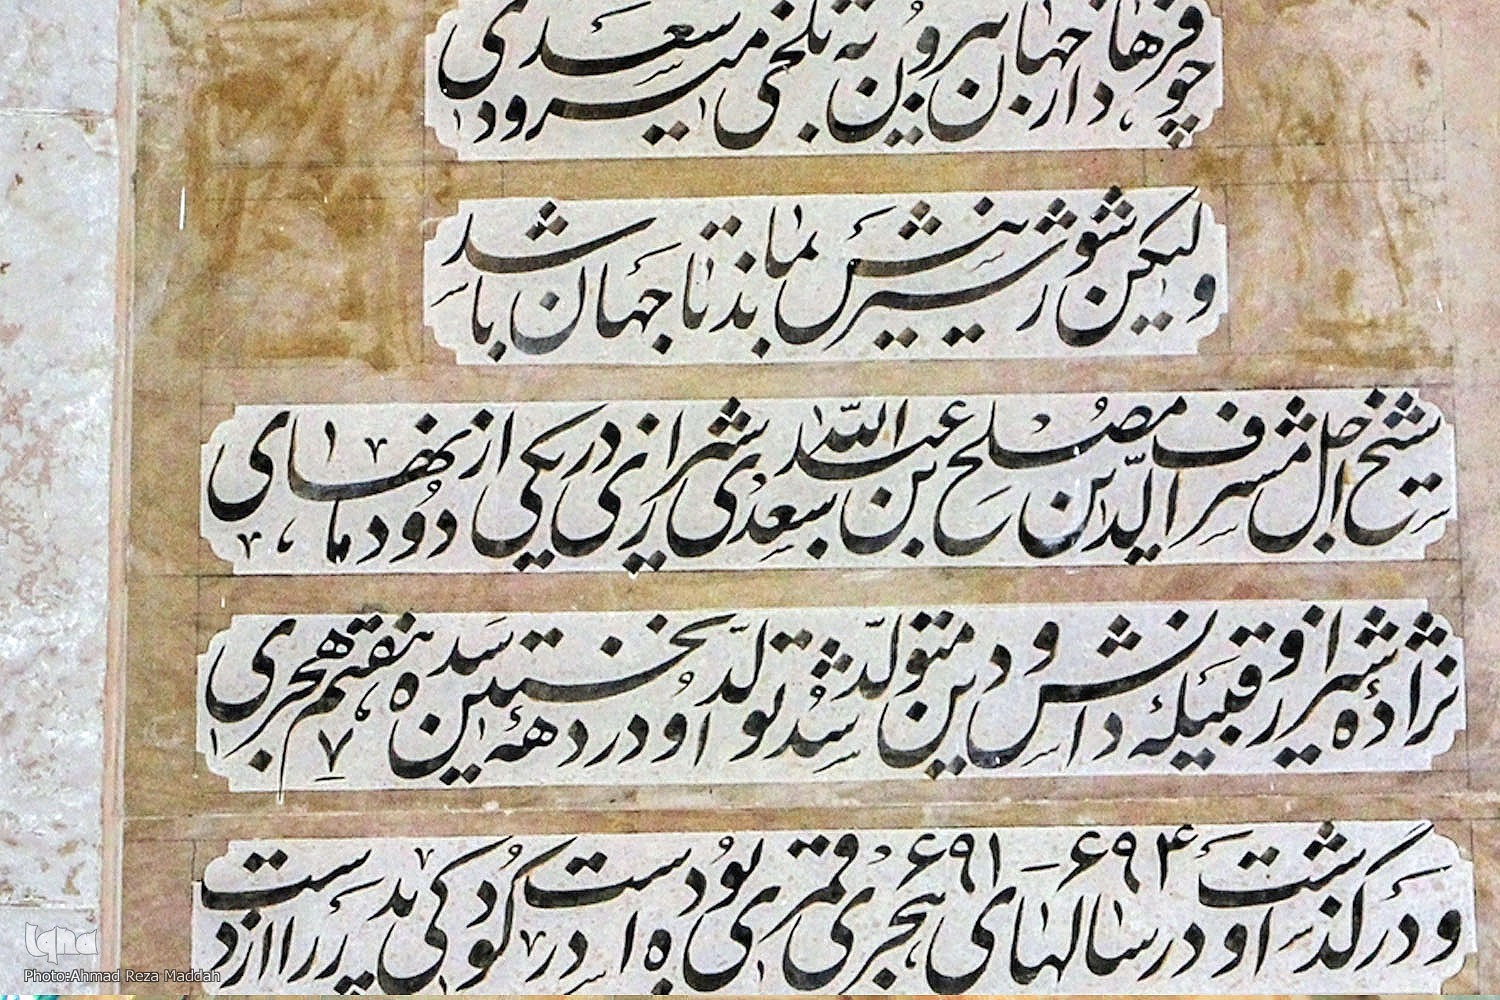 چو فرهاد از جهان بیرون به تلخی میرود سعدی
ولیکن شور شیرینش بماند تا جهان باشد
شیخ اجل مشرف الدین مصلح بن عبدالله سعدی شیرازی در یکی از دودمانهای
نژاده شیراز و قبیله دانش و دین متولد شد تولد او در دهه نخستین سده هفتم هجری
۷
و درگذشت او در سالهای ۶۹۴ - ۶۹۱ هجری قمری بوده است در کودکی پدر را از دست
iqna
Photo:Ahmad Reza Maddah